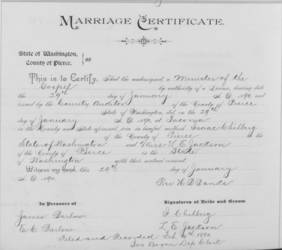 MARRIAGE CERTIFICATE.
State of Washington,
County of Pierce. ss
This is to Certify, That the undersigned, a Minister of the
Gospel by authority of a License, bearing date
the 29th day of January A. D. 1890, and
issued by the County Auditor of the County of Pierce
State of Washington, did on the 29th
day of January A. D. 1890, at Tacoma
in the County and State aforesaid, join in lawful wedlock Isaac Chilberg
of the County of Pierce
State of Washington and L. E. Jackson
of the County of Pierce State
of Washington with their mutual consent
Witness my hand this 29th day of January
A. D. 1890.
Rev.
In Presence of
Signatures of Bride and Groom.
James Barlow
I Chilberg
Barlow
L. E. Jackson
Filed and Recorded Feb 1890